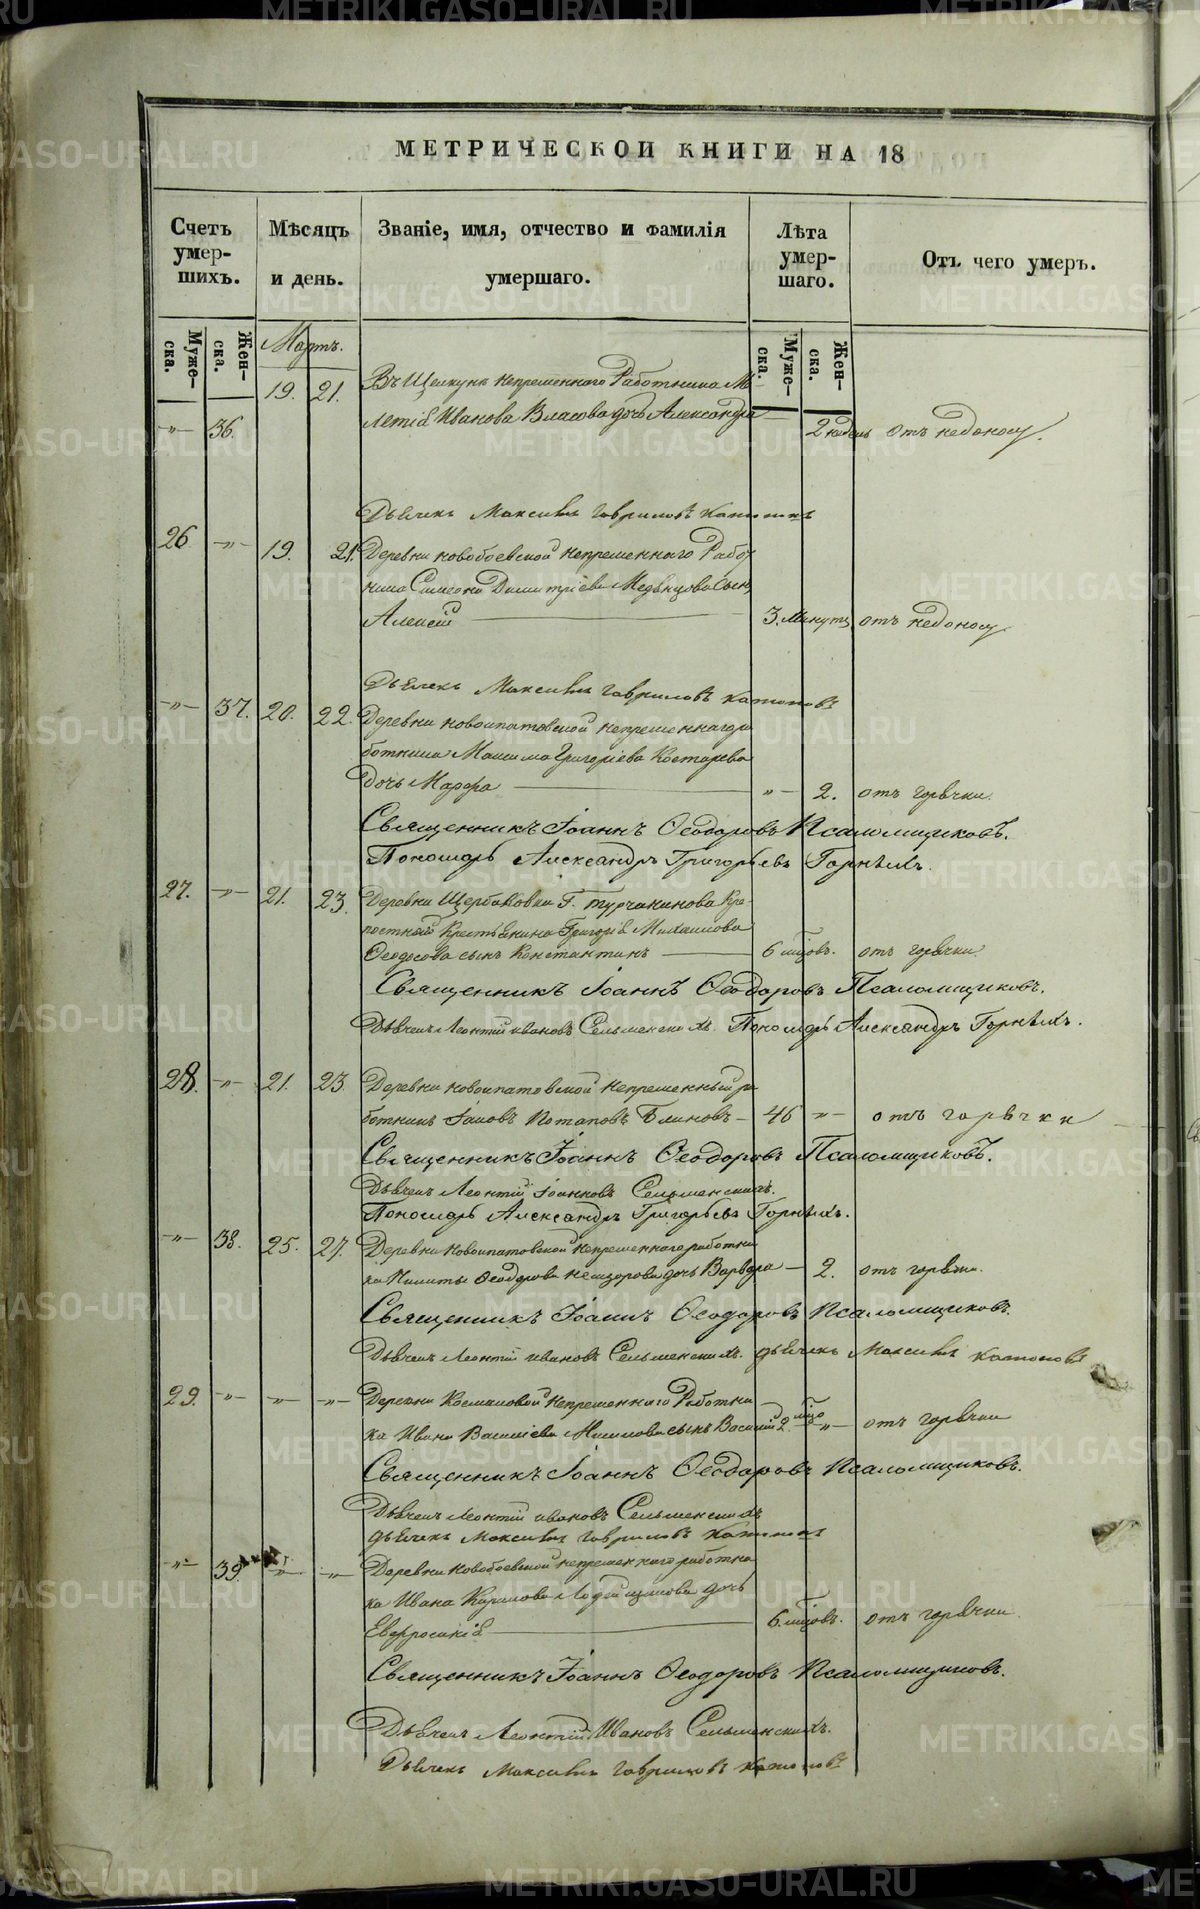 МЕТРИЧЕСКОЙ КНИГИ НА 18
Счетъ умер-шихъ.
Мѣсяцъ и день.
Званіе, имя, отчество и фамилія умершаго.
Лѣта умер-шаго.
Отъ чего умеръ.
Муже-ска.
Жен-ска.
Муже-ска.
Жен-ска.
Мартъ.
19. 21. Въ Щелкунъ непременнаго Работника М-
„ 36. летія Иванова Власова дочь Александра 2 недель отъ недоносу.
Дьячекъ Максимъ Гавриловъ
26 „ 19. 21. Деревни новобоевской непременнаго Работ
ника Симеона Димитріева сынъ
Алексій 3. минуты отъ недоносу
Дьячекъ Максимъ Гавриловъ
„ 37. 20. 22. Деревни новоипатовской непременнаго ра
ботника Максима Григоріева Костарева
дочь Марфа „ 2. отъ горячки.
Священникъ Іоаннъ Ѳеодоровъ Псаломщиковъ.
Пономарь Александръ Григорьевъ Горныхъ.
27. „ 21. 23. Деревни Щербаковки Г. Турчанинова Кре-
постнаго Крестьянина Григорія Михаилова
Ѳеодосова сынъ Константинъ 6 мцовъ. отъ горячки
Священникъ Іоаннъ Ѳеодоровъ Псаломщиковъ.
Дьячекъ Леонтій Ивановъ Сельменскихъ. Пономарь Александръ Горныхъ.
28. „ 21. 23 Деревни новоипатовской непременный ра
ботникъ Іаковъ Потаповъ Блиновъ 46 „ отъ горячки
Священникъ Іоаннъ Ѳеодоровъ Псаломщиковъ.
Дьячекъ Леонтій Іоанновъ Сельменскихъ.
Пономарь Александръ Григорьевъ Горныхъ.
„ 38. 25. 27. Деревни Новоипатовской непременнаго работни
ка Никиты Ѳеодорова дочь Варвара 2. отъ горячки.
Священникъ Іоаннъ Ѳеодоровъ Псаломщиковъ.
Дьячекъ Леонтій Ивановъ Сельменскихъ. дьячекъ Максимъ
29. „ „ „ Деревни Космаковой непременнаго Работни
ка Ивана Василіева сынъ Василій 2. мцо „ отъ горячки
Священникъ Іоаннъ Ѳеодоровъ Псаломщиковъ.
Дьячекъ Леонтій Ивановъ Сельменскихъ
дьячекъ Максимъ Гавриловъ
„ 39. „ „ Деревни новобоевской непременнаго работни
ка Ивана Кирилова дочь
Евфросинія 6. мцовъ. отъ горячки.
Священникъ Іоаннъ Ѳеодоровъ Псаломщиковъ.
Дьячекъ Леонтій Ивановъ Сельменскихъ.
Дьячекъ Максимъ Гавриловъ
METRIKI.GASO-URAL.RU